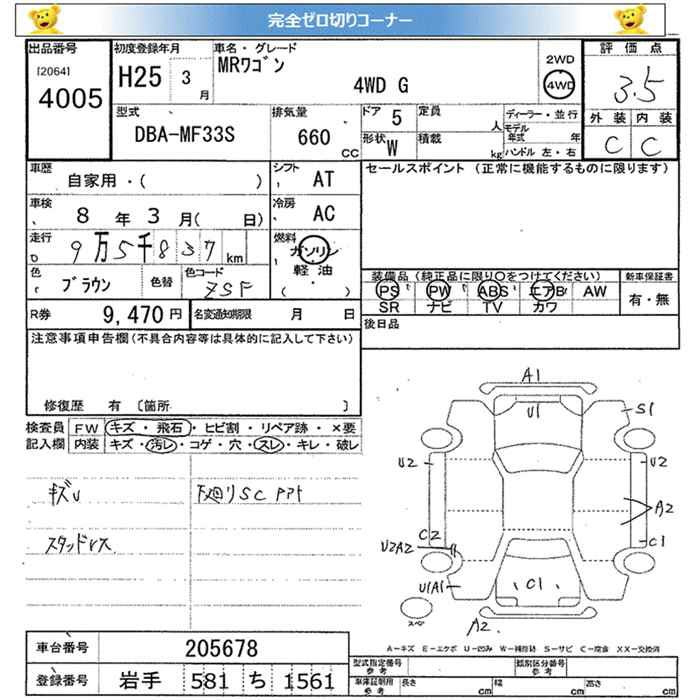 完全ゼロ切りコーナー
出品番号 [2064] 4005
初度登録年月 H25 3 月
車名・グレード MRワゴン 4WD G
2WD 4WD
評価点 3.5
外装 内装 C C
型式 DBA-MF33S
排気量 660 CC
ドア 5
定員 人
形状 W
積載 kg
ディーラー・並行
モデル年式 年
ハンドル 左・右
車歴 自家用・( )
シフト AT
セールスポイント (正常に機能するものに限ります)
車検 8 年 3 月( 日)
冷房 AC
走行 9万5千837 km
燃料 ガソリン・軽油・( )
色 ブラウン 色替 色コード ZSF
装備品 (純正品に限り○をつけてください) 新車保証書
PS PW ABS エアB AW 有・無
SR ナビ TV カワ
R券 9,470 円 名変通知期限 月 日
後日品
注意事項申告欄(不具合内容等は具体的に記入して下さい)
修復歴 有 〔箇所 〕
検査員 FW キズ・飛石・ヒビ割・リペア跡・×要
記入欄 内装 キズ・汚レ・コゲ・穴・スレ・キレ・破レ
キズU 下廻りSC PPT
スタッドレス
A1
U1
S1
U2 U2
A2
C2 C1
U2A2
U1A1 C1
スペ
A2
A-キズ E-エクボ U-凹み W-補修跡 S-サビ C-腐食 XX-交換済
車台番号 205678
型式指定番号 参考 類別区分番号 参考
登録番号 岩手 581 ち 1561
車庫証明用 参考 長さ cm 幅 cm 高さ cm